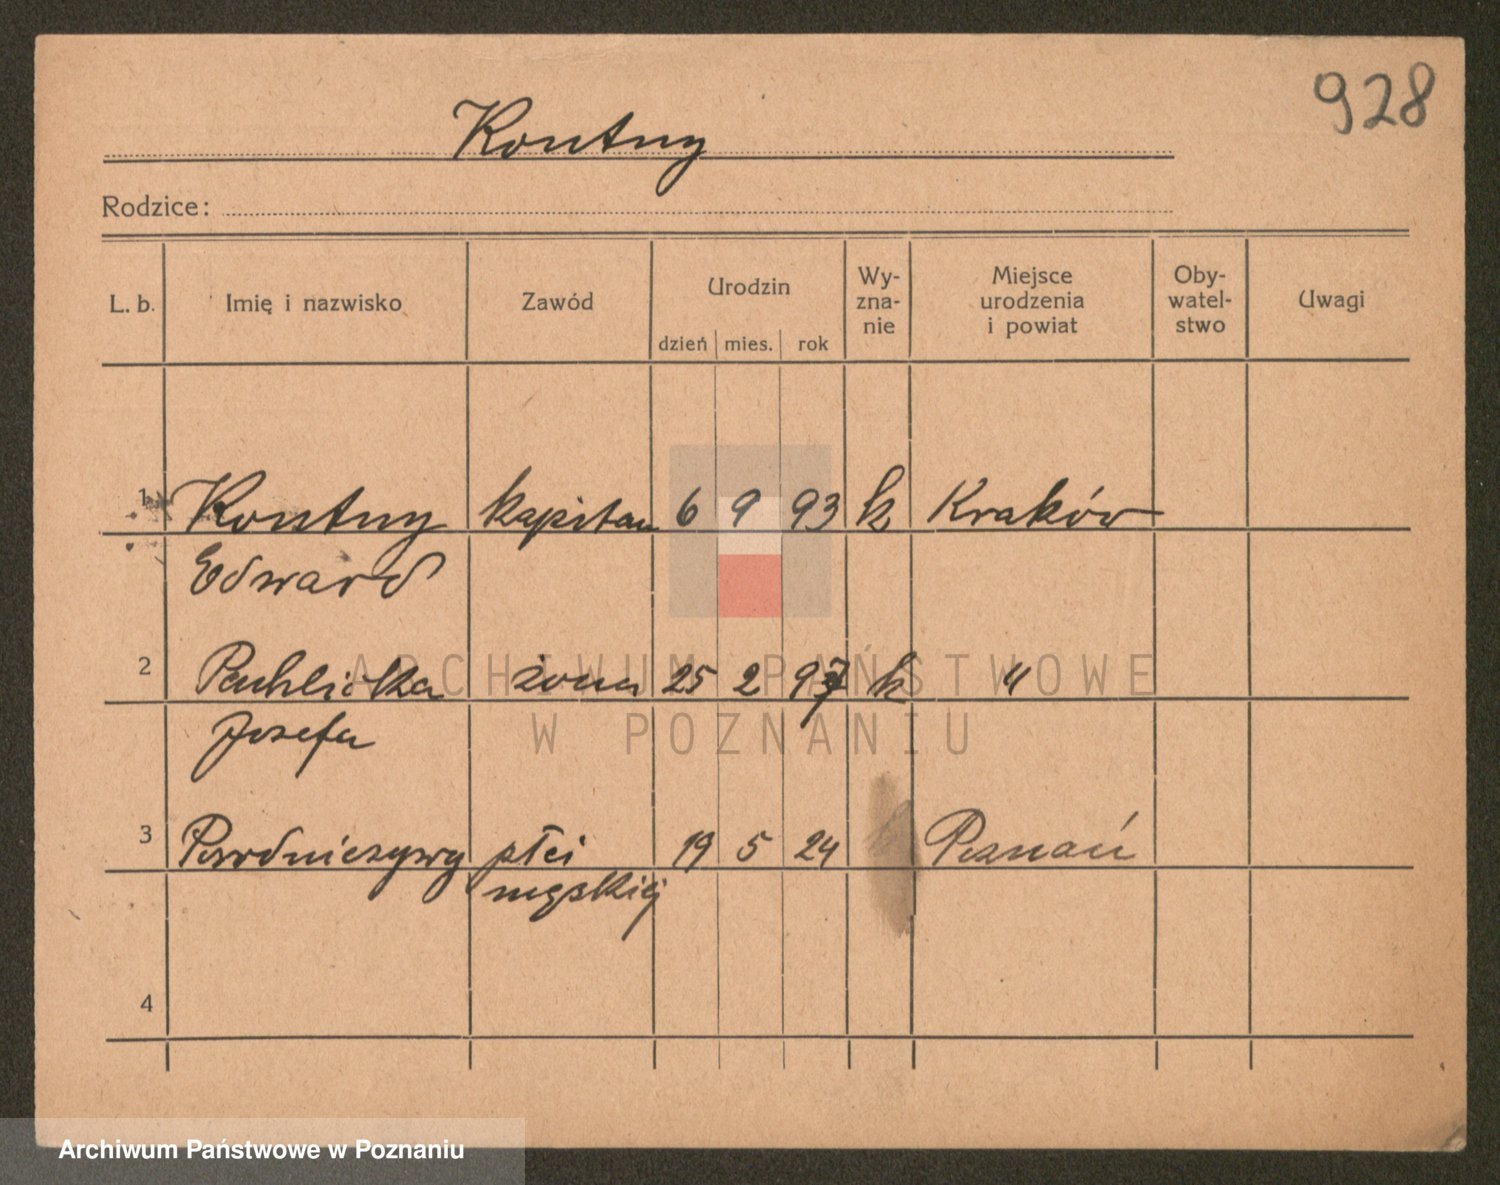 928
Kontny
Rodzice:
L. b. Imię i nazwisko Zawód Urodzin Wy- Miejsce Oby- Uwagi
zna- urodzenia watel-
nie i powiat stwo
dzień mies. rok
1 Kontny kapitan 6 9 93 k Kraków
Edward
2 żona 25 2 97 k "
Josefa
3 płci 19 5 24 Poznań
męskiej
4
ARCHIWUM PAŃSTWOWE
W POZNANIU
Archiwum Państwowe w Poznaniu